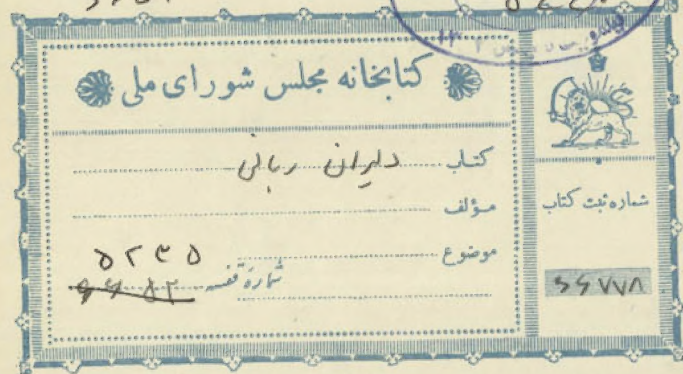 کتابخانه مجلس شورای ملی
کتاب دیوان ربانی
مؤلف
موضوع
شماره قفسه
۵۲۳۵
شماره ثبت کتاب
۶۶۷۷۸